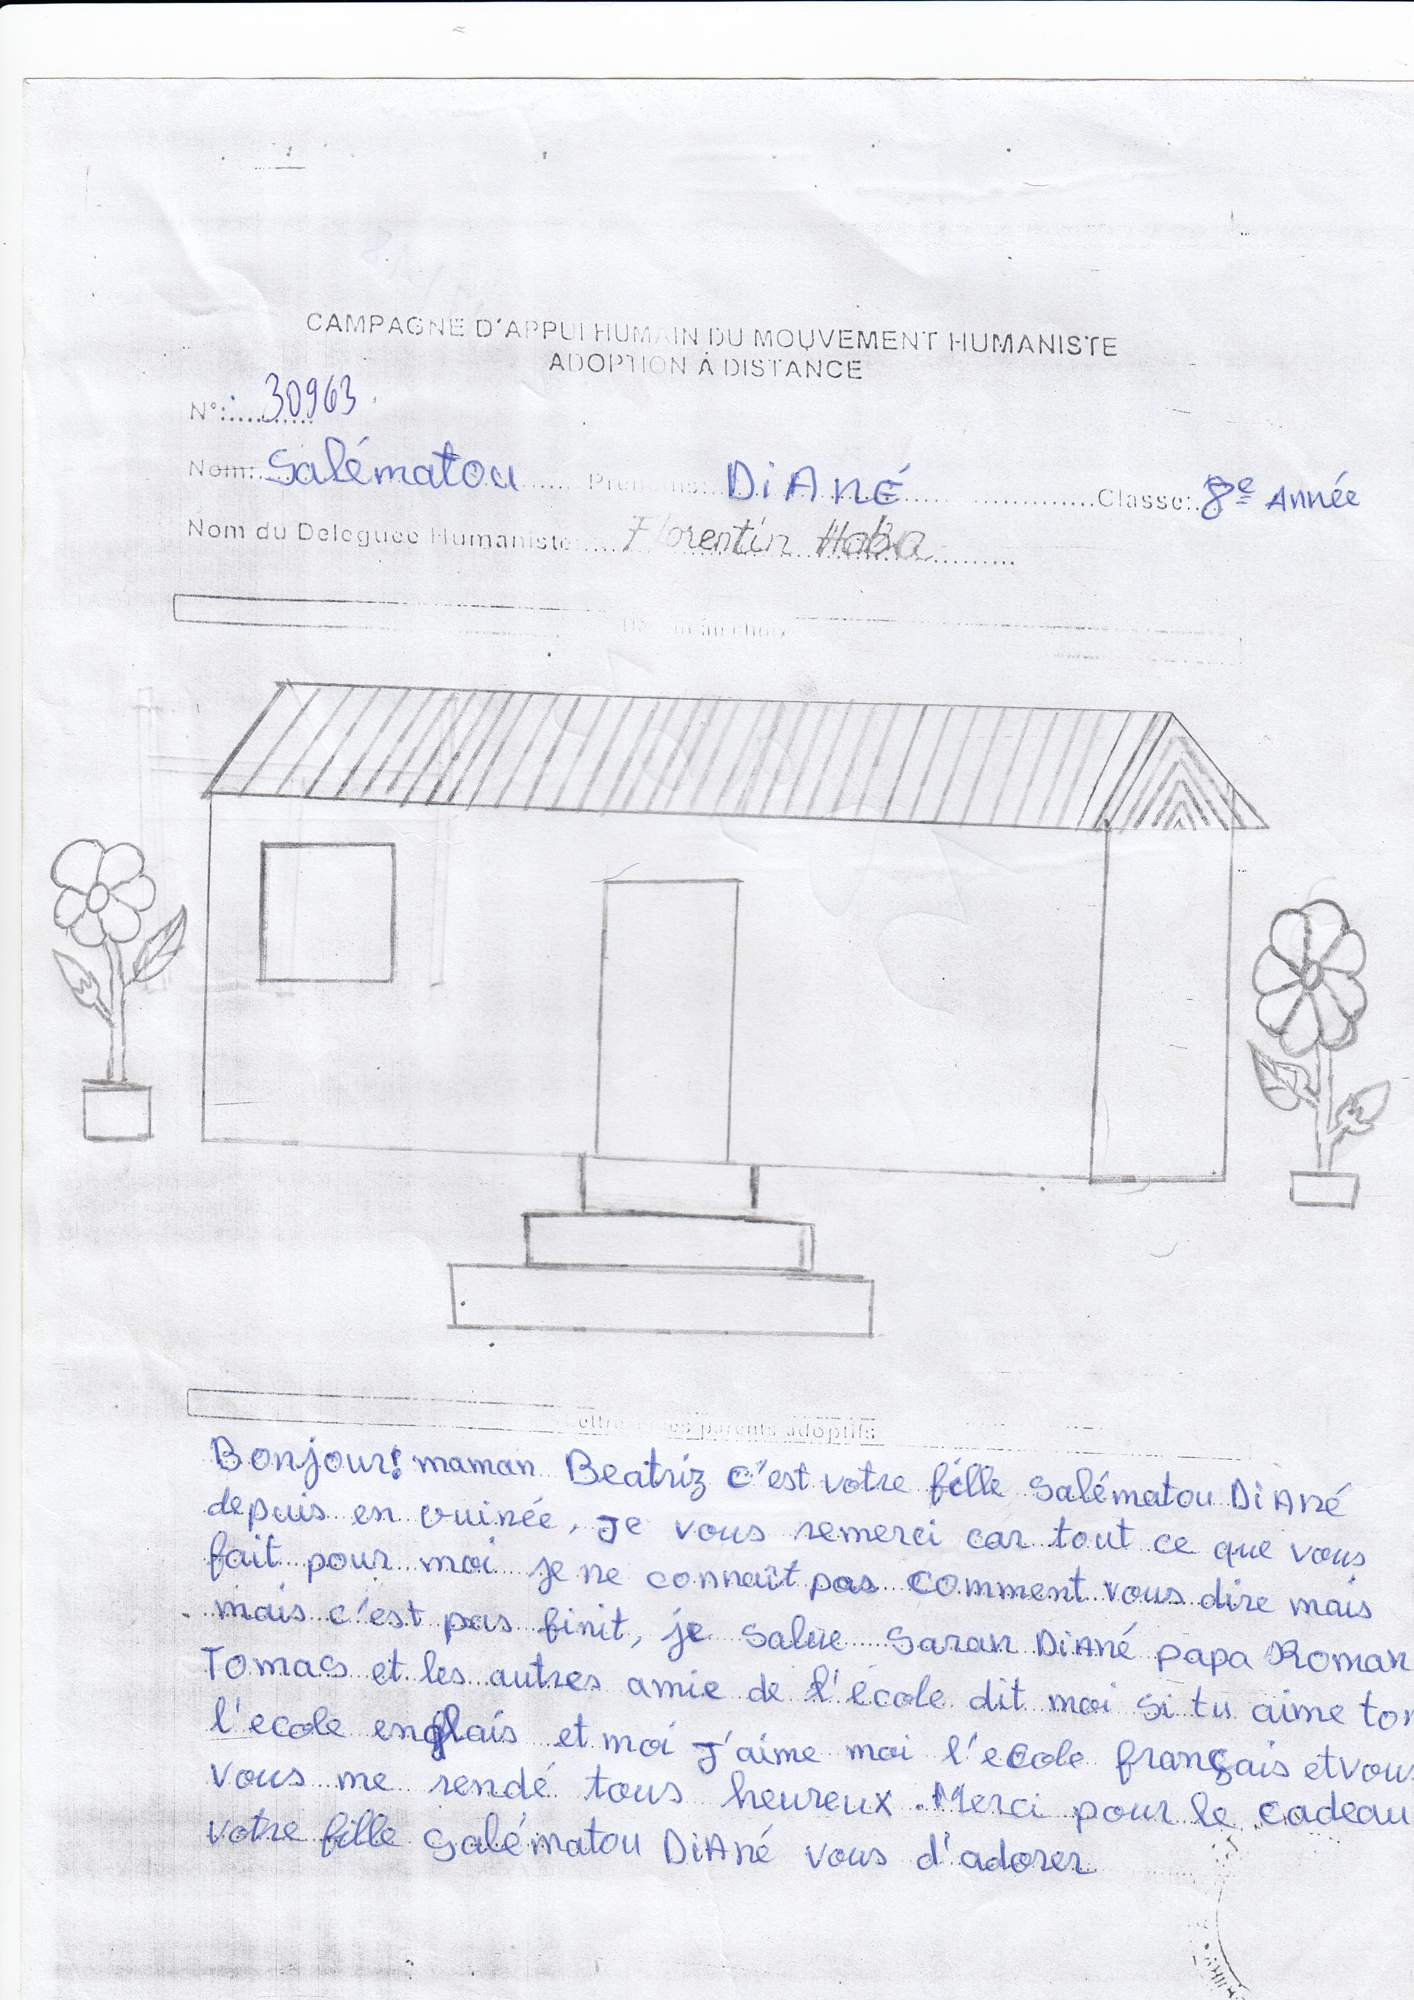 CAMPAGNE D'APPUI HUMAIN DU MOUVEMENT HUMANISTE
ADOPTION À DISTANCE
N°: 30963
Nom: Salématou Prénoms: DiANÉ Classe: 8e Année
Nom du Deleguée Humaniste Florentin Haba
au choix
parents adoptifs
Bonjour! maman Beatriz c'est votre fille Salématou DiAné
depuis en Guinée, Je vous remerci car tout ce que vous
fait pour moi je ne connaît pas comment vous dire mais
mais c'est pas finit, je salue Saran DiAné papa Roman
Tomas et les autres amie de l'école dit moi si tu aime ton
l'ecole englais et moi J'aime moi l'ecole français et vous
vous me rendé tous heureux. Merci pour le cadeau
votre fille Salématou DiAné vous d'adorer